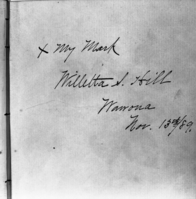 x My Mark
Willetta S. Hill
Wawona
Nov. 13th/89.